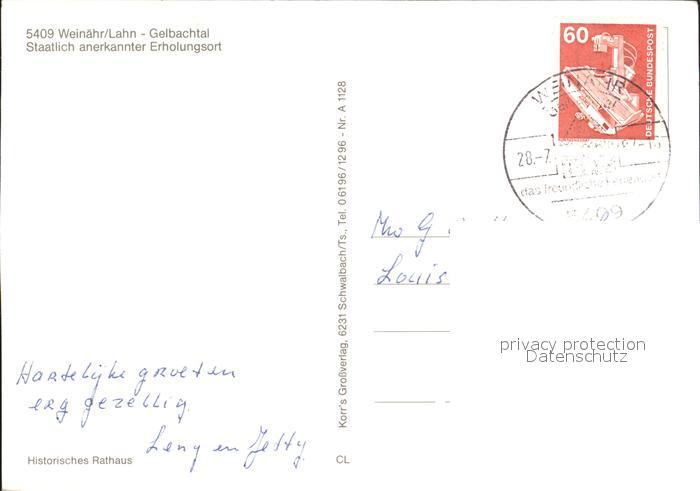 5409 Weinähr/Lahn - Gelbachtal
Staatlich anerkannter Erholungsort
60
DEUTSCHE BUNDESPOST
28.-7.
das freundliche
5409
Korr's Großverlag, 6231 Schwalbach/Ts., Tel. 0 61 96 / 12 96 - Nr. A 1128
G
Louis
privacy protection
Datenschutz
Hartelijke groeten
erg gezellig.
Leny en Jetty
Historisches Rathaus
CL